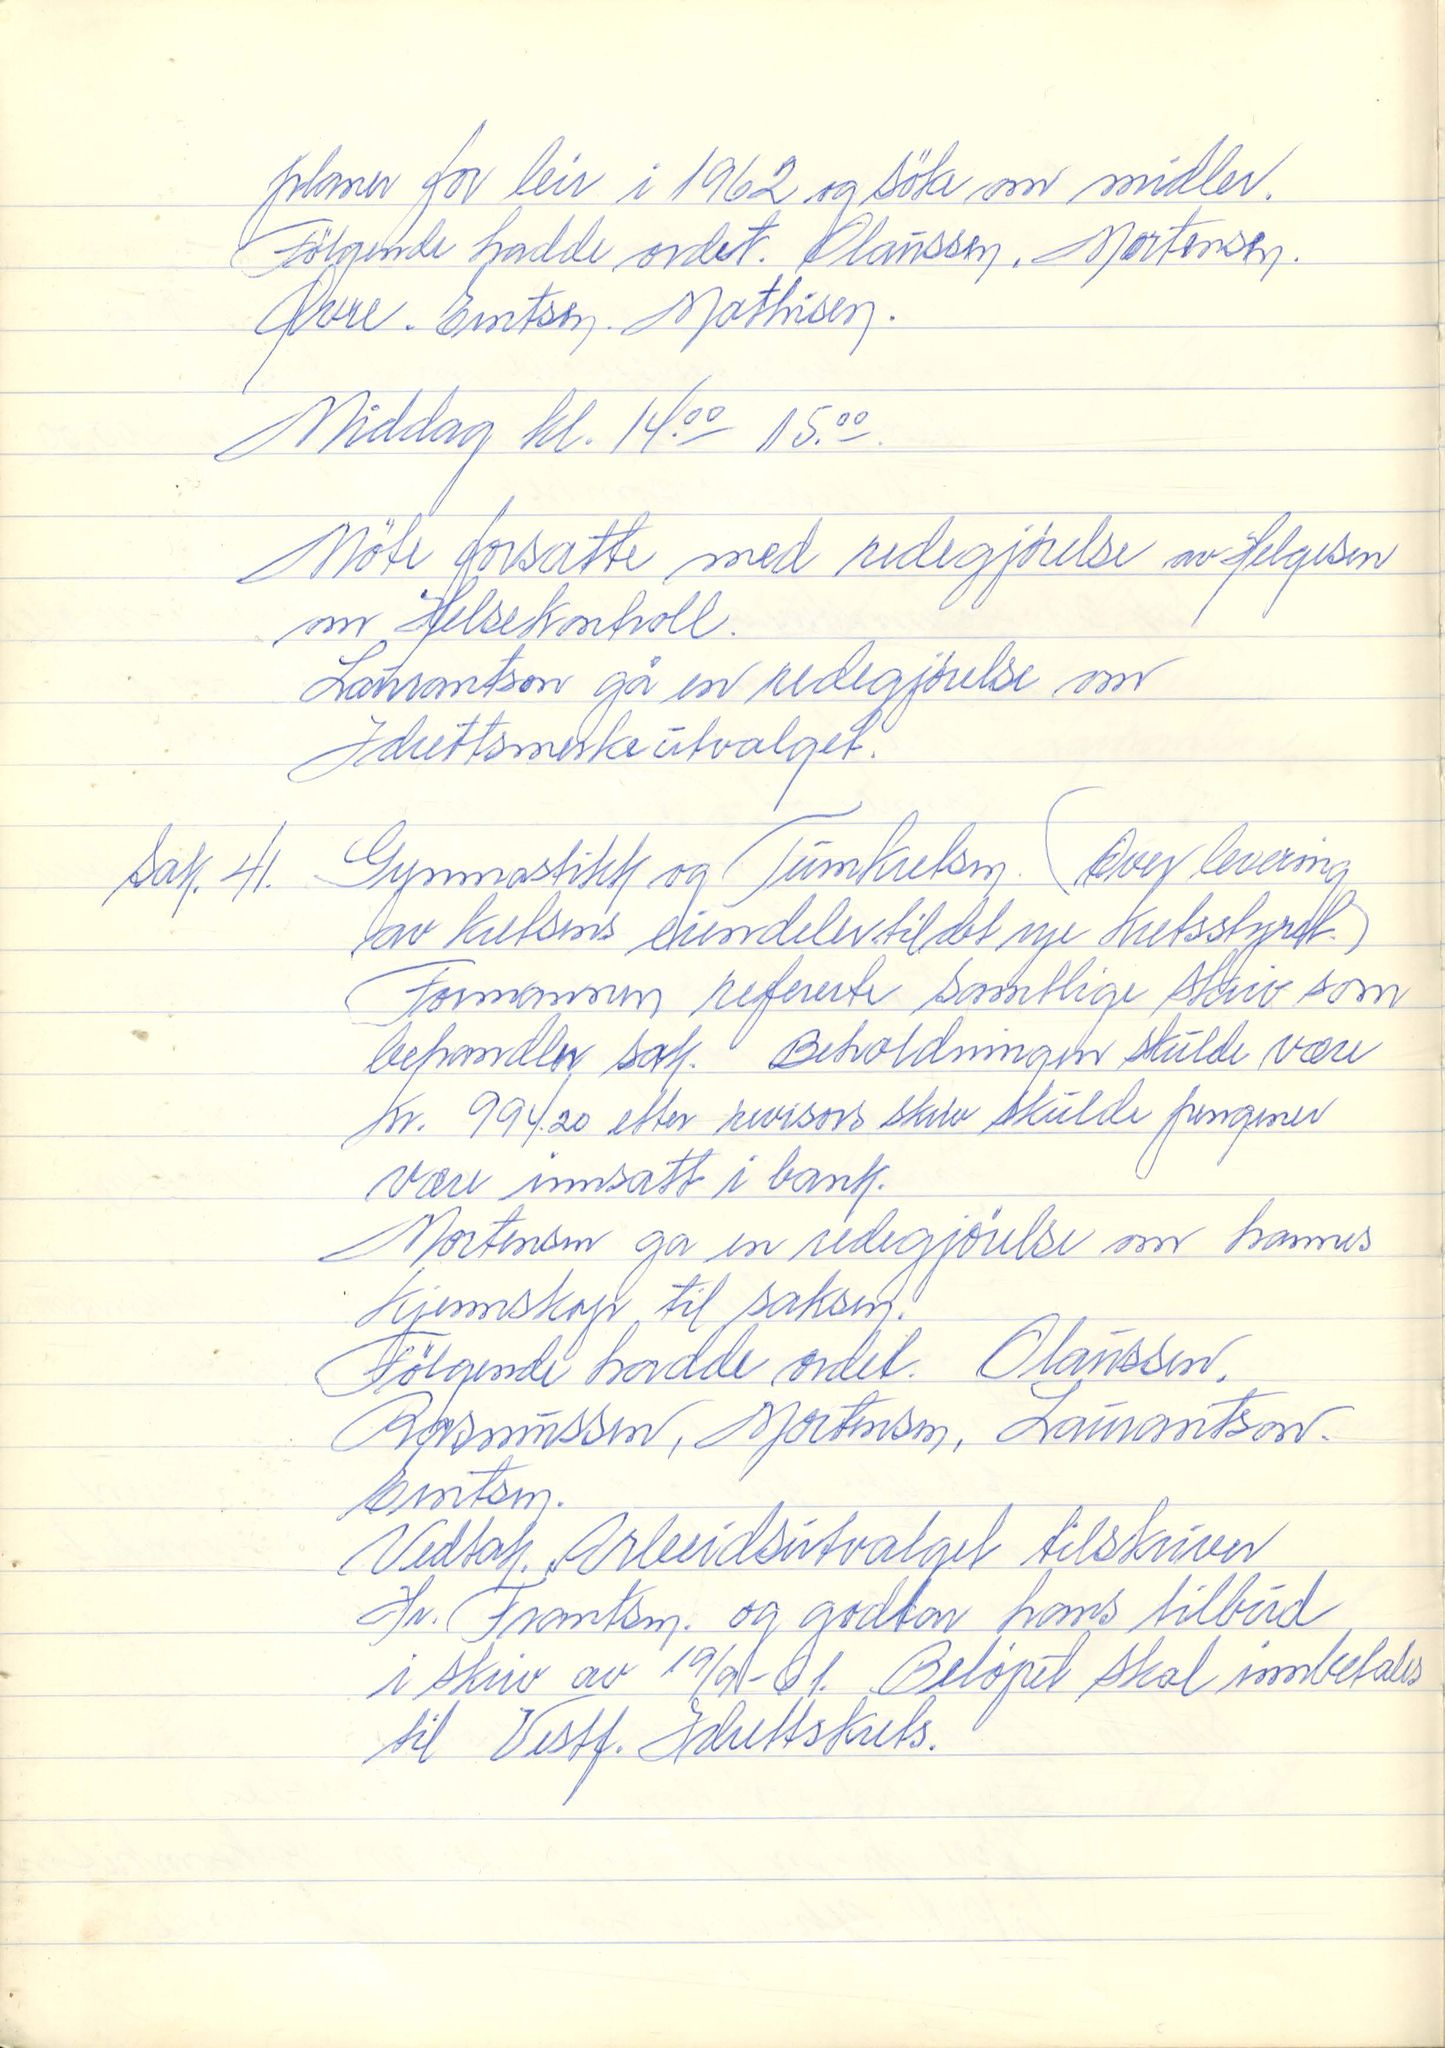 planer for leir i 1962 og söke om midler.
Fölgende hadde ordet. Olaussen. Mortensen.
Øvre. Erntsen. Mathisen.
Middag kl. 14.00 15.00.
Möte forsatte med redegjörelse av Helgesen
om Helsekontroll.
Laurantson gå en redegjörelse om
Idrettsmerkeutvalget.
Sak. 41. Gymnastikk og Turnkretsen. (Over levering
av kretsens eiendeler til det nye kretsstyret.)
Formannen refererte samtlige skriv som
behandler sak. Beholdningen skulde være
kr. 994.20 etter revisors skriv skulde pengener
være innsatt i bank.
Mortensen ga en redegjörelse om hannes
kjennskap til saksen.
Fölgende hadde ordet. Olaussen.
Rasmussen, Mortensen, Laurantson.
Erntsen.
Vedtak. Arbeidsutvalget tilskriver
Hr. Frantsen. og godtar hans tilbud
i skriv av 19/9-61. Belöpet skal innbetales
til Vestf. Idrettskrets.